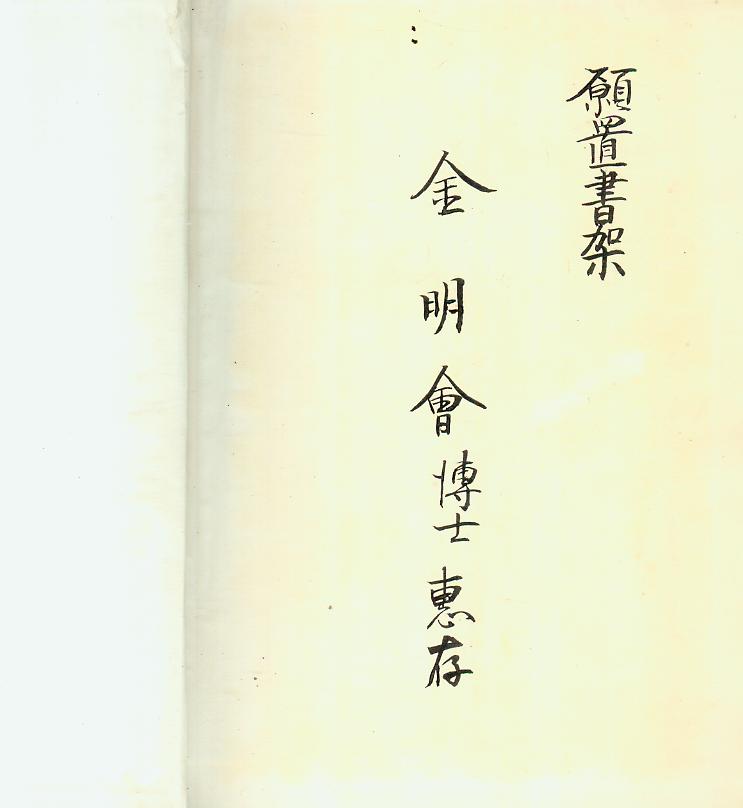 願置書架
金明會博士惠存